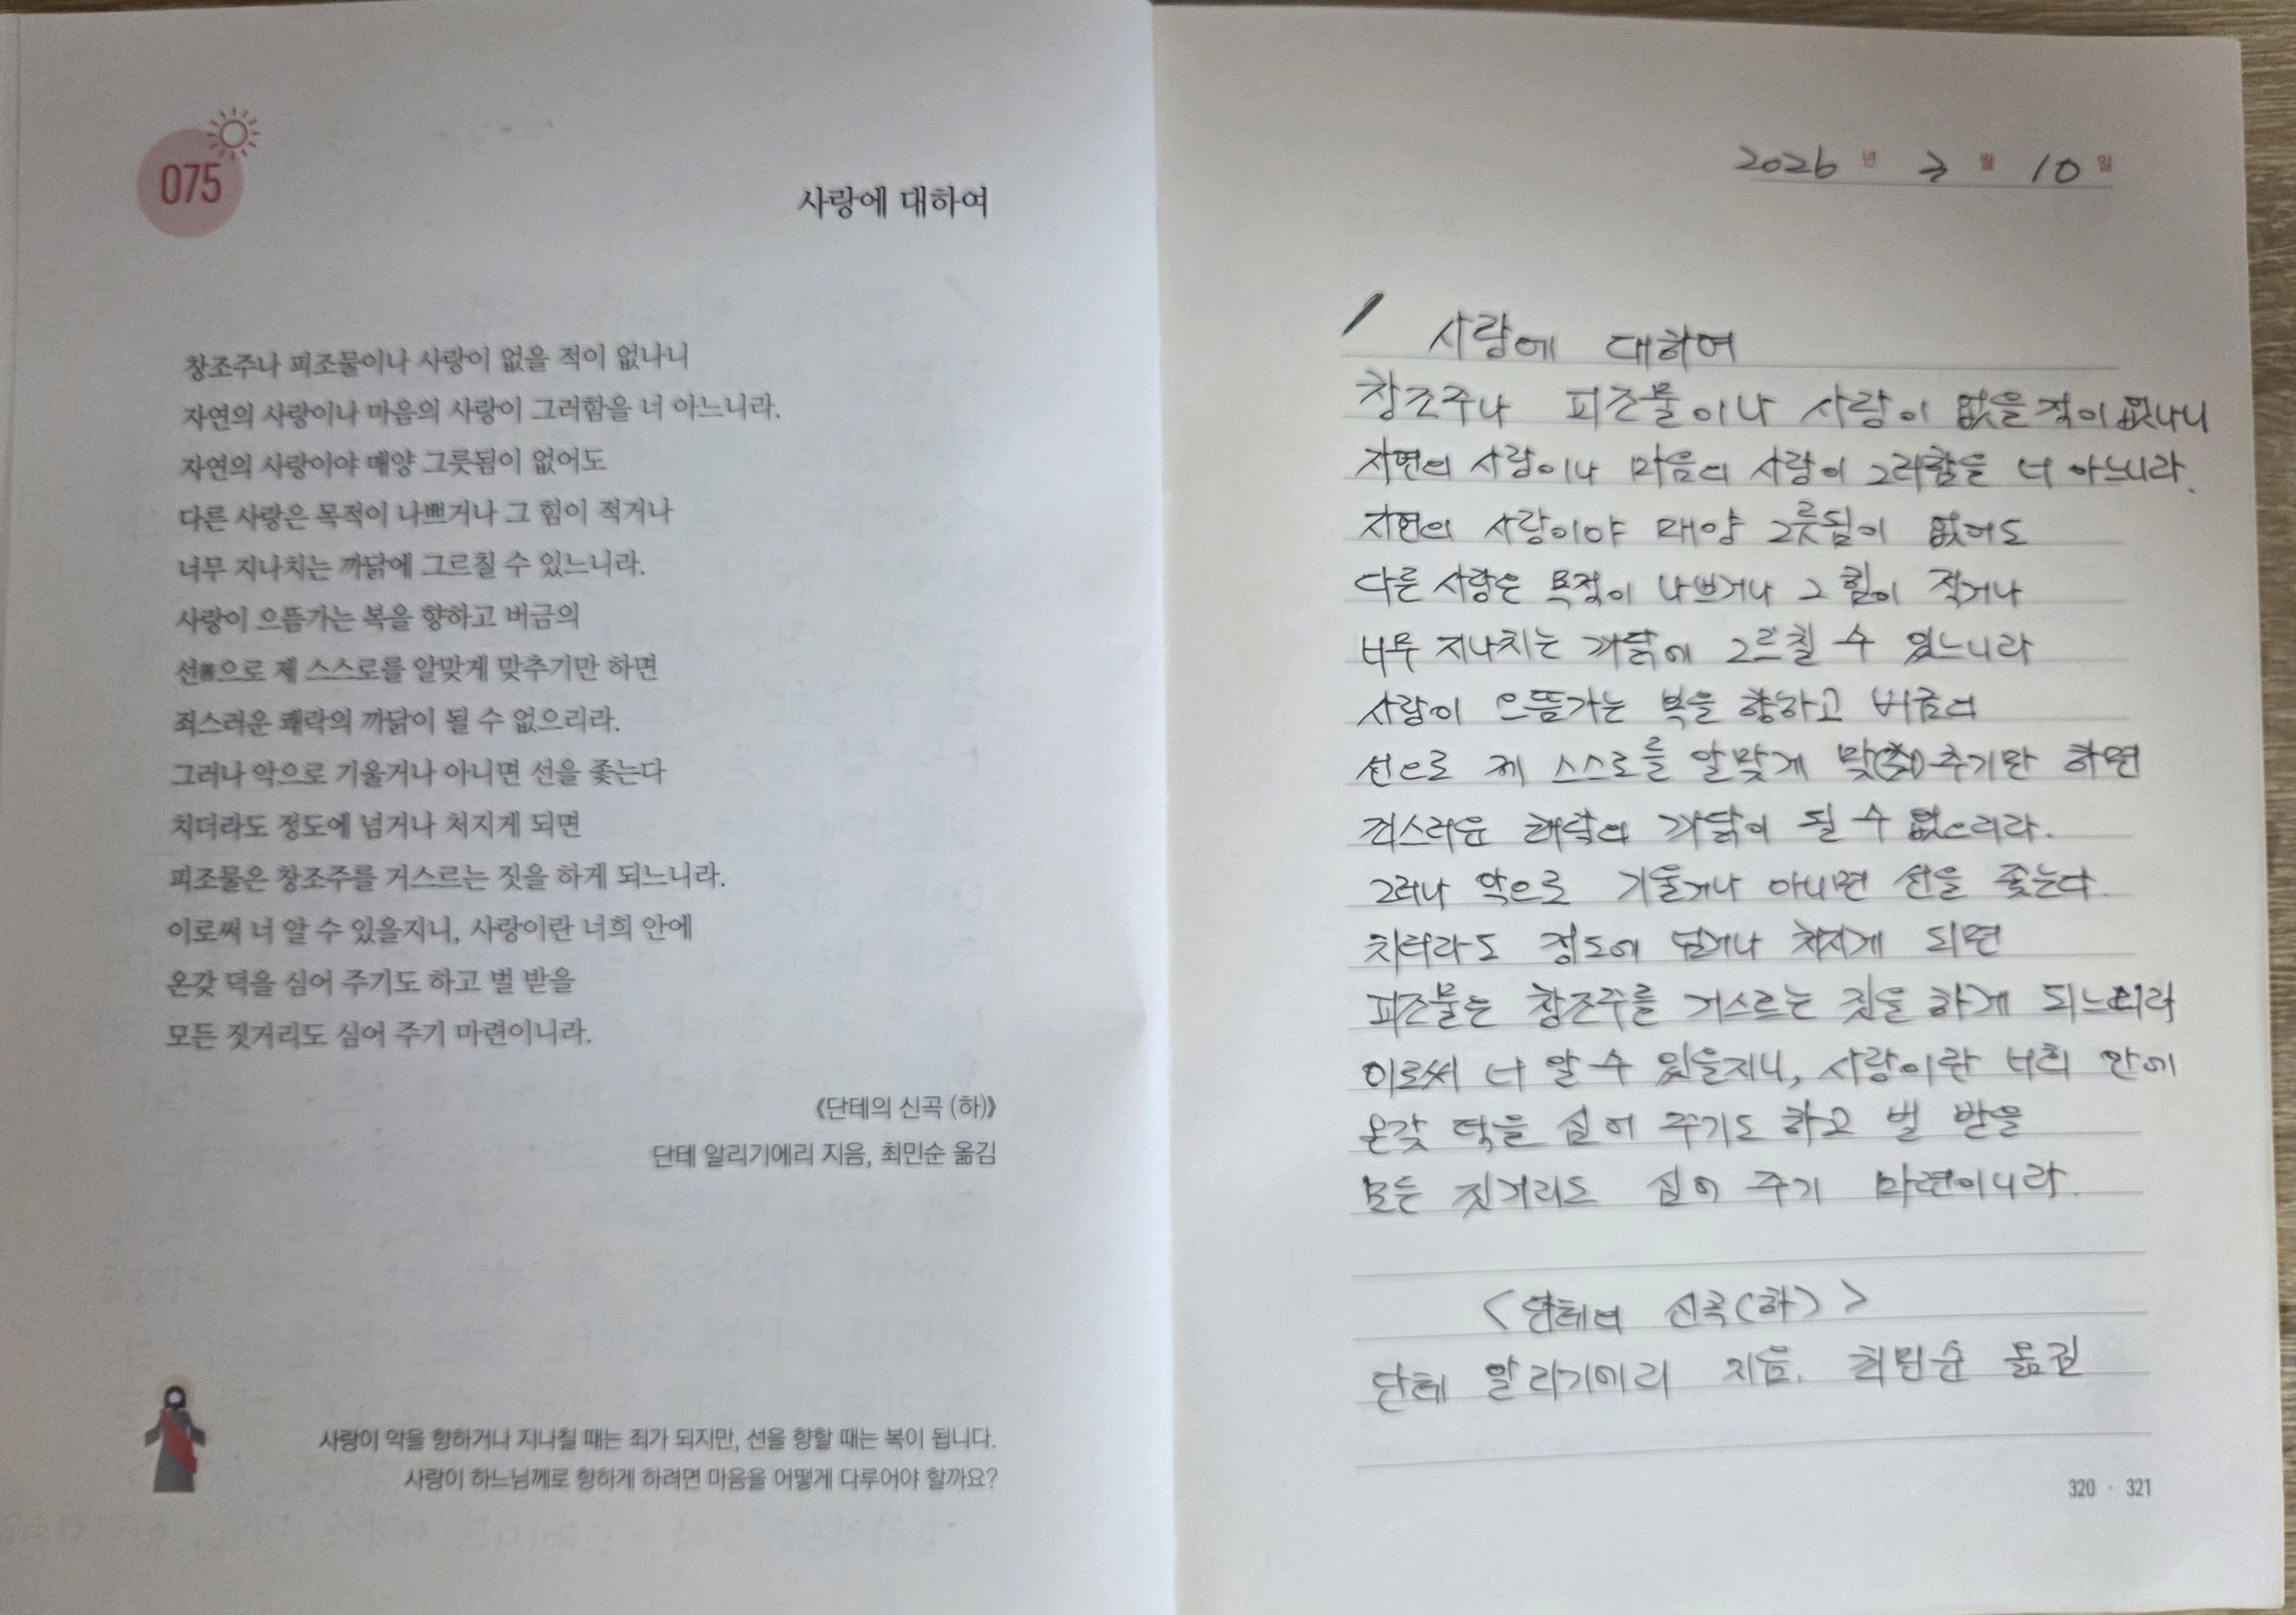 075
사랑에 대하여
창조주나 피조물이나 사랑이 없을 적이 없나니
자연의 사랑이나 마음의 사랑이 그러함을 너 아느니라.
자연의 사랑이야 매양 그릇됨이 없어도
다른 사랑은 목적이 나쁘거나 그 힘이 적거나
너무 지나치는 까닭에 그르칠 수 있느니라.
사랑이 으뜸가는 복을 향하고 버금의
선善으로 제 스스로를 알맞게 맞추기만 하면
죄스러운 쾌락의 까닭이 될 수 없으리라.
그러나 악으로 기울거나 아니면 선을 좇는다
치더라도 정도에 넘거나 처지게 되면
피조물은 창조주를 거스르는 짓을 하게 되느니라.
이로써 너 알 수 있을지니, 사랑이란 너희 안에
온갖 덕을 심어 주기도 하고 벌 받을
모든 짓거리도 심어 주기 마련이니라.
《단테의 신곡 (하)》
단테 알리기에리 지음, 최민순 옮김
사랑이 악을 향하거나 지나칠 때는 죄가 되지만, 선을 향할 때는 복이 됩니다.
사랑이 하느님께로 향하게 하려면 마음을 어떻게 다루어야 할까요?
2026년 월 10일
사랑에 대하여
창조주나 피조물이나 사랑이 없을 적이 없나니
자연의 사랑이나 마음의 사랑이 그러함을 너 아느니라.
자연의 사랑이야 매양 그릇됨이 없어도
다른 사랑은 목적이 나쁘거나 그 힘이 적거나
너무 지나치는 까닭에 그르칠 수 있느니라
사랑이 으뜸가는 복을 향하고 버금의
선으로 제 스스로를 알맞게 추기만 하면
죄스러운 쾌락의 까닭이 될 수 없으리라.
그러나 악으로 기울거나 아니면 선을 좇는다.
치더라도 정도에 넘거나 처지게 되면
피조물은 창조주를 거스르는 짓을 하게 되느니라
이로써 너 알 수 있을지니, 사랑이란 너희 안에
온갖 덕을 심어 주기도 하고 벌 받을
모든 짓거리도 심어 주기 마련이니라.
<단테의 신곡(하)>
단테 알리기에리 지음. 최민순 옮김
320 · 321